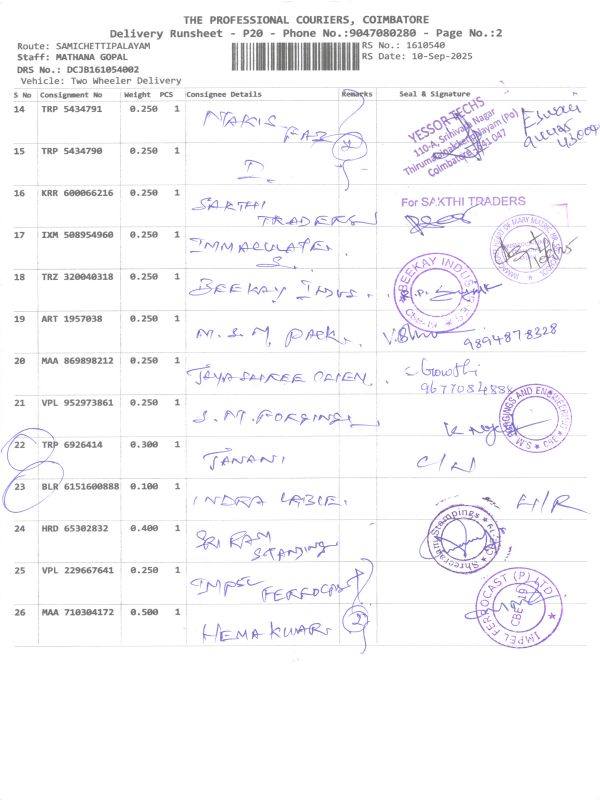 THE PROFESSIONAL COURIERS, COIMBATORE
Delivery Runsheet - P20 - Phone No.:9047080280 - Page No.:2
Route: SAMICHETTIPALAYAM
RS No.: 1610540
Staff: MATHANA GOPAL
RS Date: 10-Sep-2025
DRS No.: DCJB161054002
Vehicle: Two Wheeler Delivery
S No Consignment No Weight PCS Consignee Details Remarks Seal & Signature
14 TRP 5434791 0.250 1 NTAKIS FAB
YESSOR TECHS
110-A, Srinivasa Nagar
Coimbatore - 641 047
15 TRP 5434790 0.250 1 D. 2
16 KRR 600066216 0.250 1 SAKTHI TRADERS For SAKTHI TRADERS
17 IXM 508954960 0.250 1 IMMACULATE. S.
18 TRZ 320040318 0.250 1 BEEKAY INDUS. BEEKAY INDUSTRIES
19 ART 1957038 0.250 1 M.S.M. Pack. 9894878328
20 MAA 869898212 0.250 1 JAYASHREE Gowthi
9677084888
21 VPL 952973861 0.250 1 S.M. FORGINGS
22 TRP 6926414 0.300 1 JANANI C/N
23 BLR 6151600888 0.100 1 INDRA LABLE. H/R
24 HRD 65302832 0.400 1 SRI RAM Stampings
25 VPL 229667641 0.250 1 IMPEL FERROCAST IMPEL FERROCAST (P) LTD CBE-19
26 MAA 710304172 0.500 1 HEMA KUMAR. 2